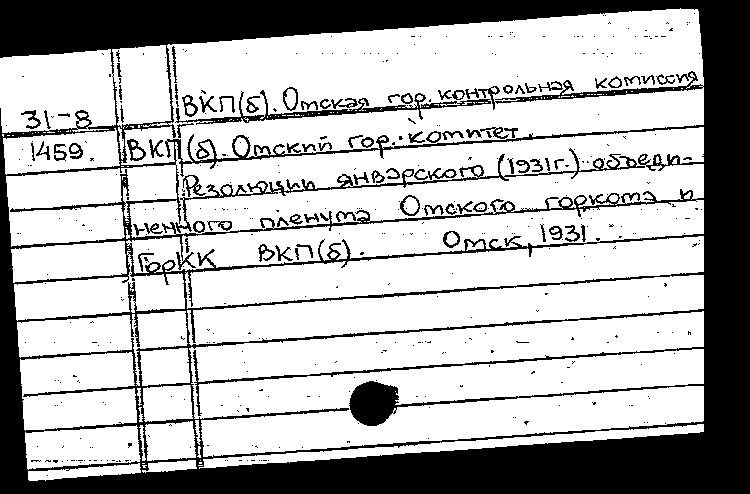 ВКП(б). Омская гор. контрольная комиссия
31-8
1459. ВКП(б). Омский гор. комитет.
Резолюции январского (1931г.) объеди-
ненного пленума Омского горкома и
ГорКК ВКП(б). Омск, 1931.